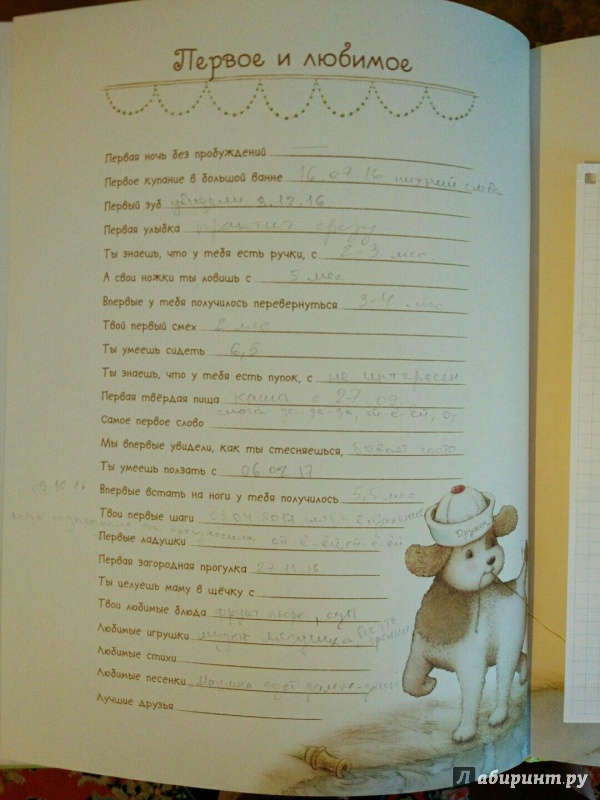 Первое и любимое
Первая ночь без пробуждений
Первое купание в большой ванне 16.07.16
Первый зуб увидели 3.12.16
Первая улыбка практич. сразу
Ты знаешь, что у тебя есть ручки, с 2-3 мес
А свои ножки ты ловишь с 5 мес
Впервые у тебя получилось перевернуться 3-4 мес
Твой первый смех 2 мес
Ты умеешь сидеть 6,5
Ты знаешь, что у тебя есть пупок, с не интересен
Первая твёрдая пища каша с 27.09
Самое первое слово
Мы впервые увидели, как ты стесняешься, бывает часто
Ты умеешь ползать с 06.02.17
Впервые встать на ноги у тебя получилось 5,5 мес
Твои первые шаги 03.04.2017
Первые ладушки
Первая загородная прогулка 27.11.16
Ты целуешь маму в щёчку с
Твои любимые блюда фрукт. пюре, суп
Любимые игрушки
Любимые стихи
Любимые песенки
Лучшие друзья
Дружок
Лабиринт.ру